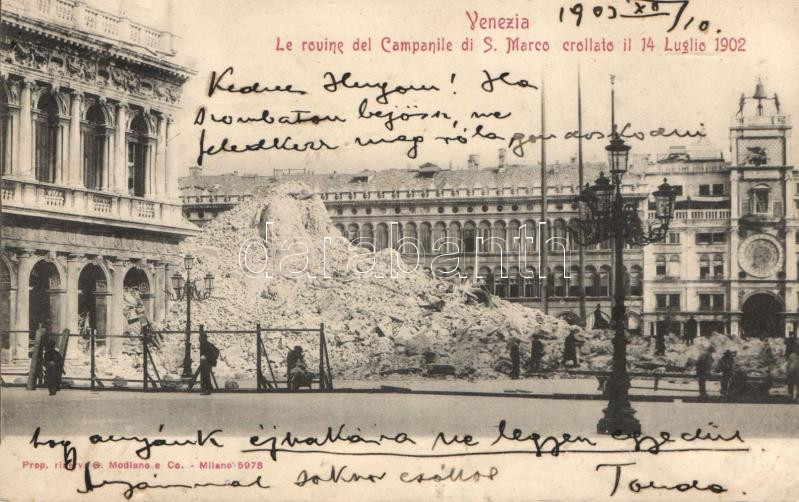 Venezia
1903 XII/10.
Le rovine del Campanile di S. Marco crollato il 14 Luglio 1902
Kedves Hugom! Ha
szombaton bejössz, ne
feledkezz meg róla gondoskodni
darabanth
hogy anyánk éjszakára ne legyen egyedül
Prop. riserv. G. Modiano e Co. - Milano 5978
sokszor csókol Tonda.